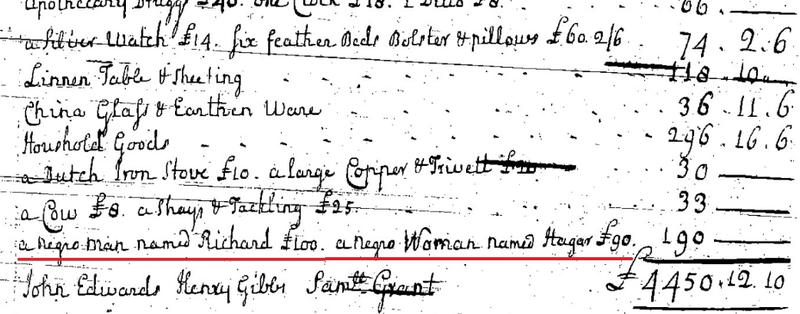 Apothecary Druggs £40. one Clock £18. 1 Ditto £8. 66.
a silver Watch £14. six feather Beds Bolster & pillows £60.2/6 74.2.6
Linnen Table & Sheeting 118.10
China Glass & Earthen Ware 36.11.6
Houshold Goods 296.16.6
a Dutch Iron Stove £10. a large Copper & Trivett £20 30
a Cow £8. a Shays & Tackling £25. 33
a negro man named Richard £100. a negro Woman named Hagar £90. 190
John Edwards Henry Gibbs Samll Grant £4450.12.10